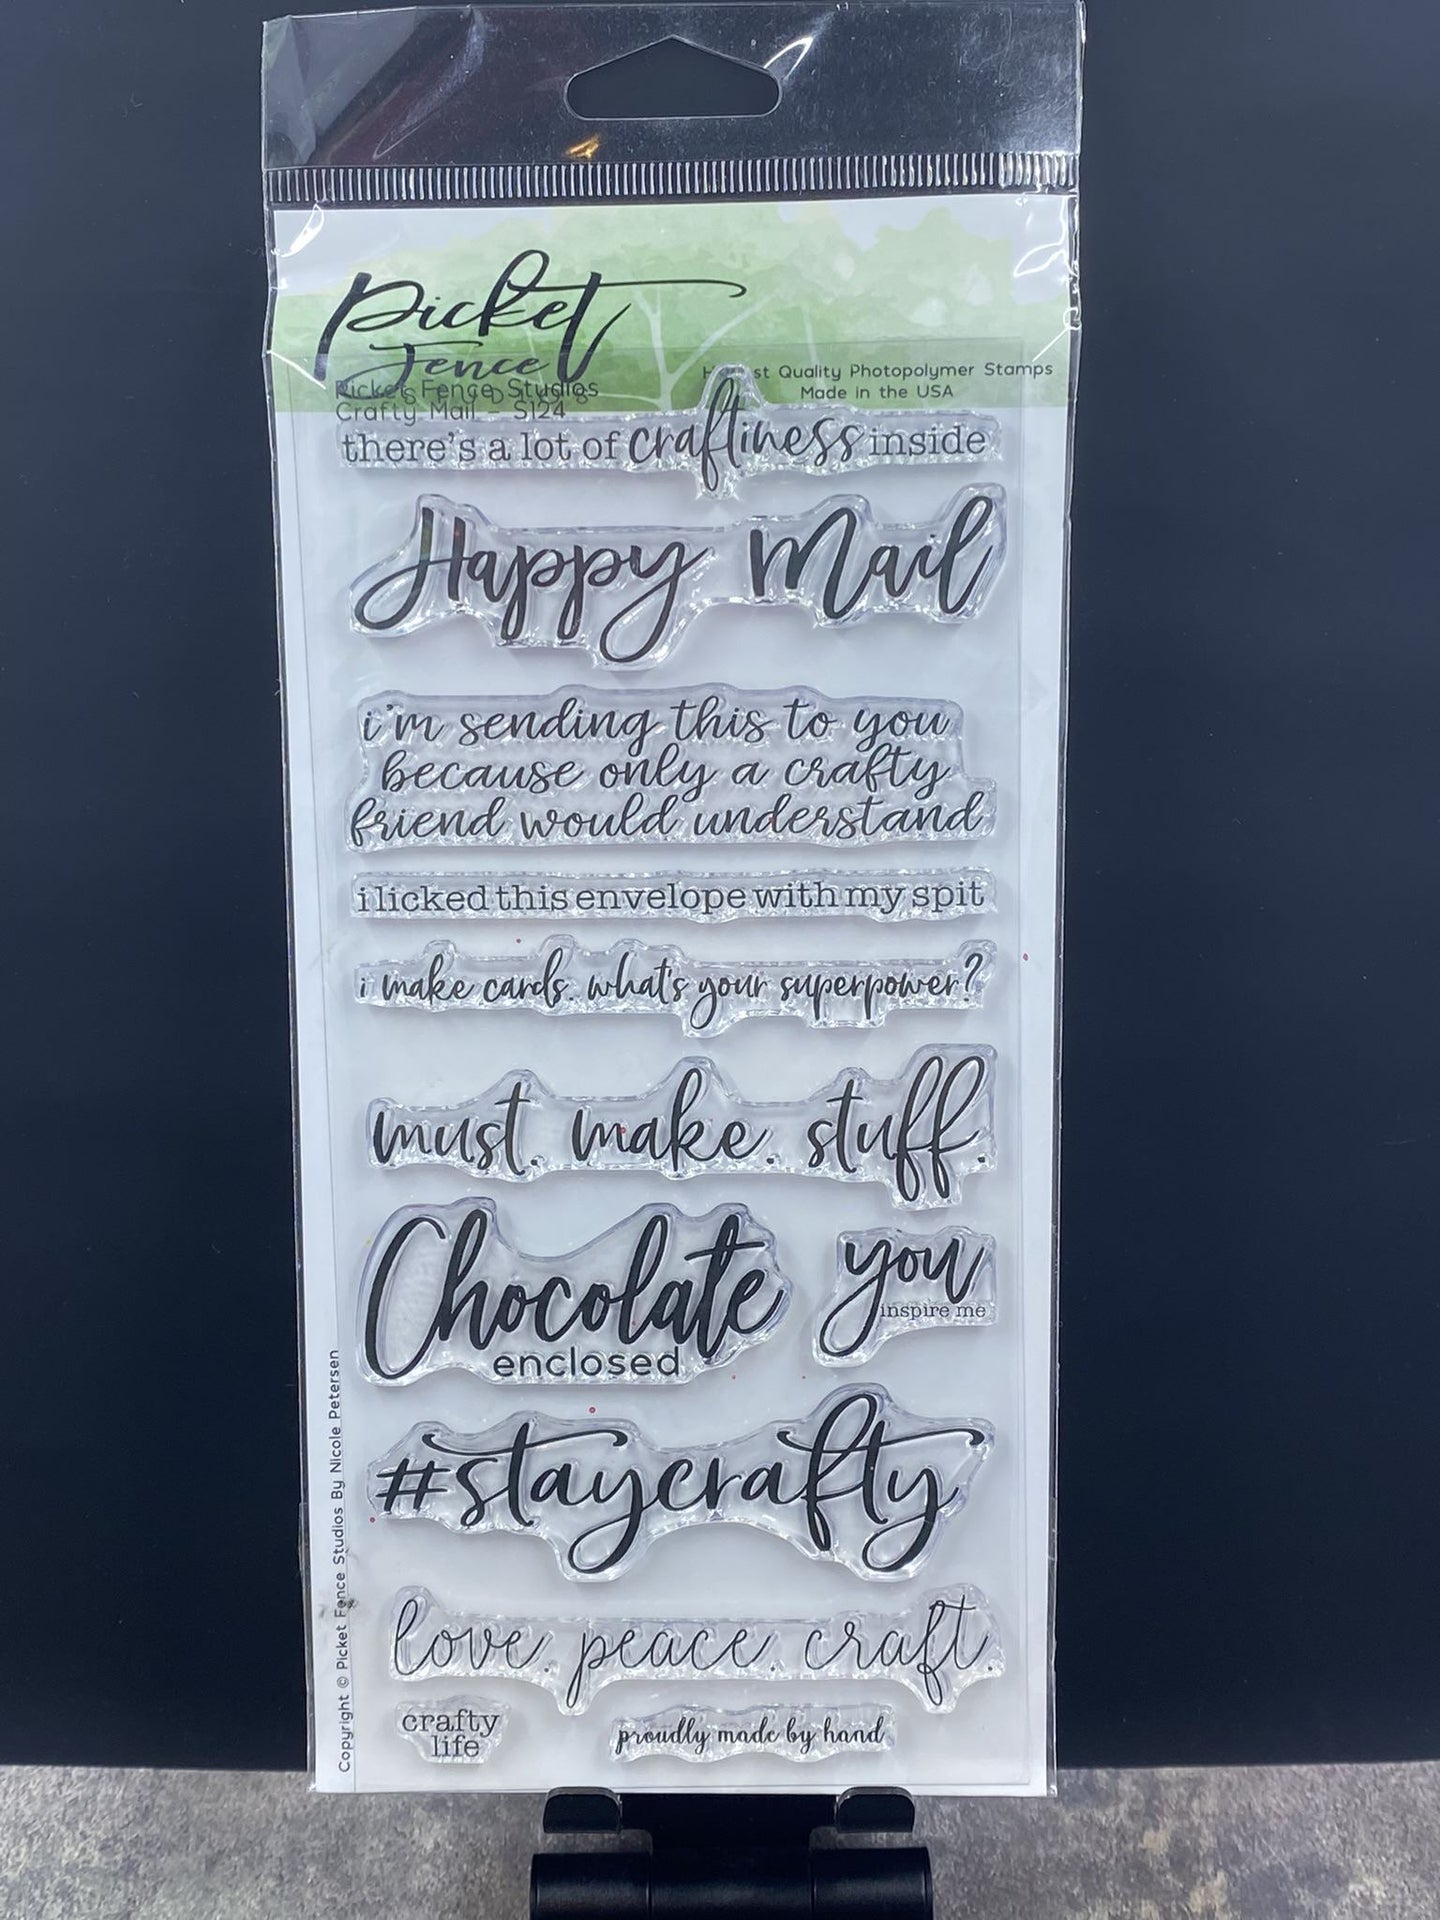 Picket
Fence
STUDIOS
Picket Fence Studios
Crafty Mail - S124
Quality Photopolymer Stamps
Made in the USA
there's a lot of craftiness inside
Happy Mail
i'm sending this to you
because only a crafty
friend would understand
i licked this envelope with my spit
i make cards. what's your superpower?
must. make. stuff.
Chocolate
enclosed
you
inspire me
#staycrafty
love. peace. craft.
crafty
life
proudly made by hand
Copyright © Picket Fence Studios By Nicole Petersen